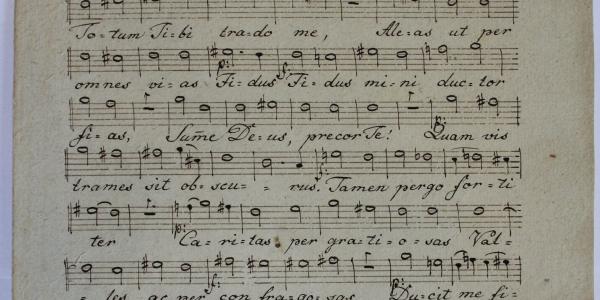 To=tum Ti=bi tra=do me, Ale=as ut per
p: f:
omnes vi=as Fi=dus Fi=dus mi=ni duc=tor
p:
fi=as, Sume De=us, precor Te! Quam vis
trames sit ob=scu= = rus. Tamen pergo for=ti
ter Ca=ri=tas per gra=ti=o=sas Val=
f: p:
= les ac per con fra=go=sas Du=cit me fi=